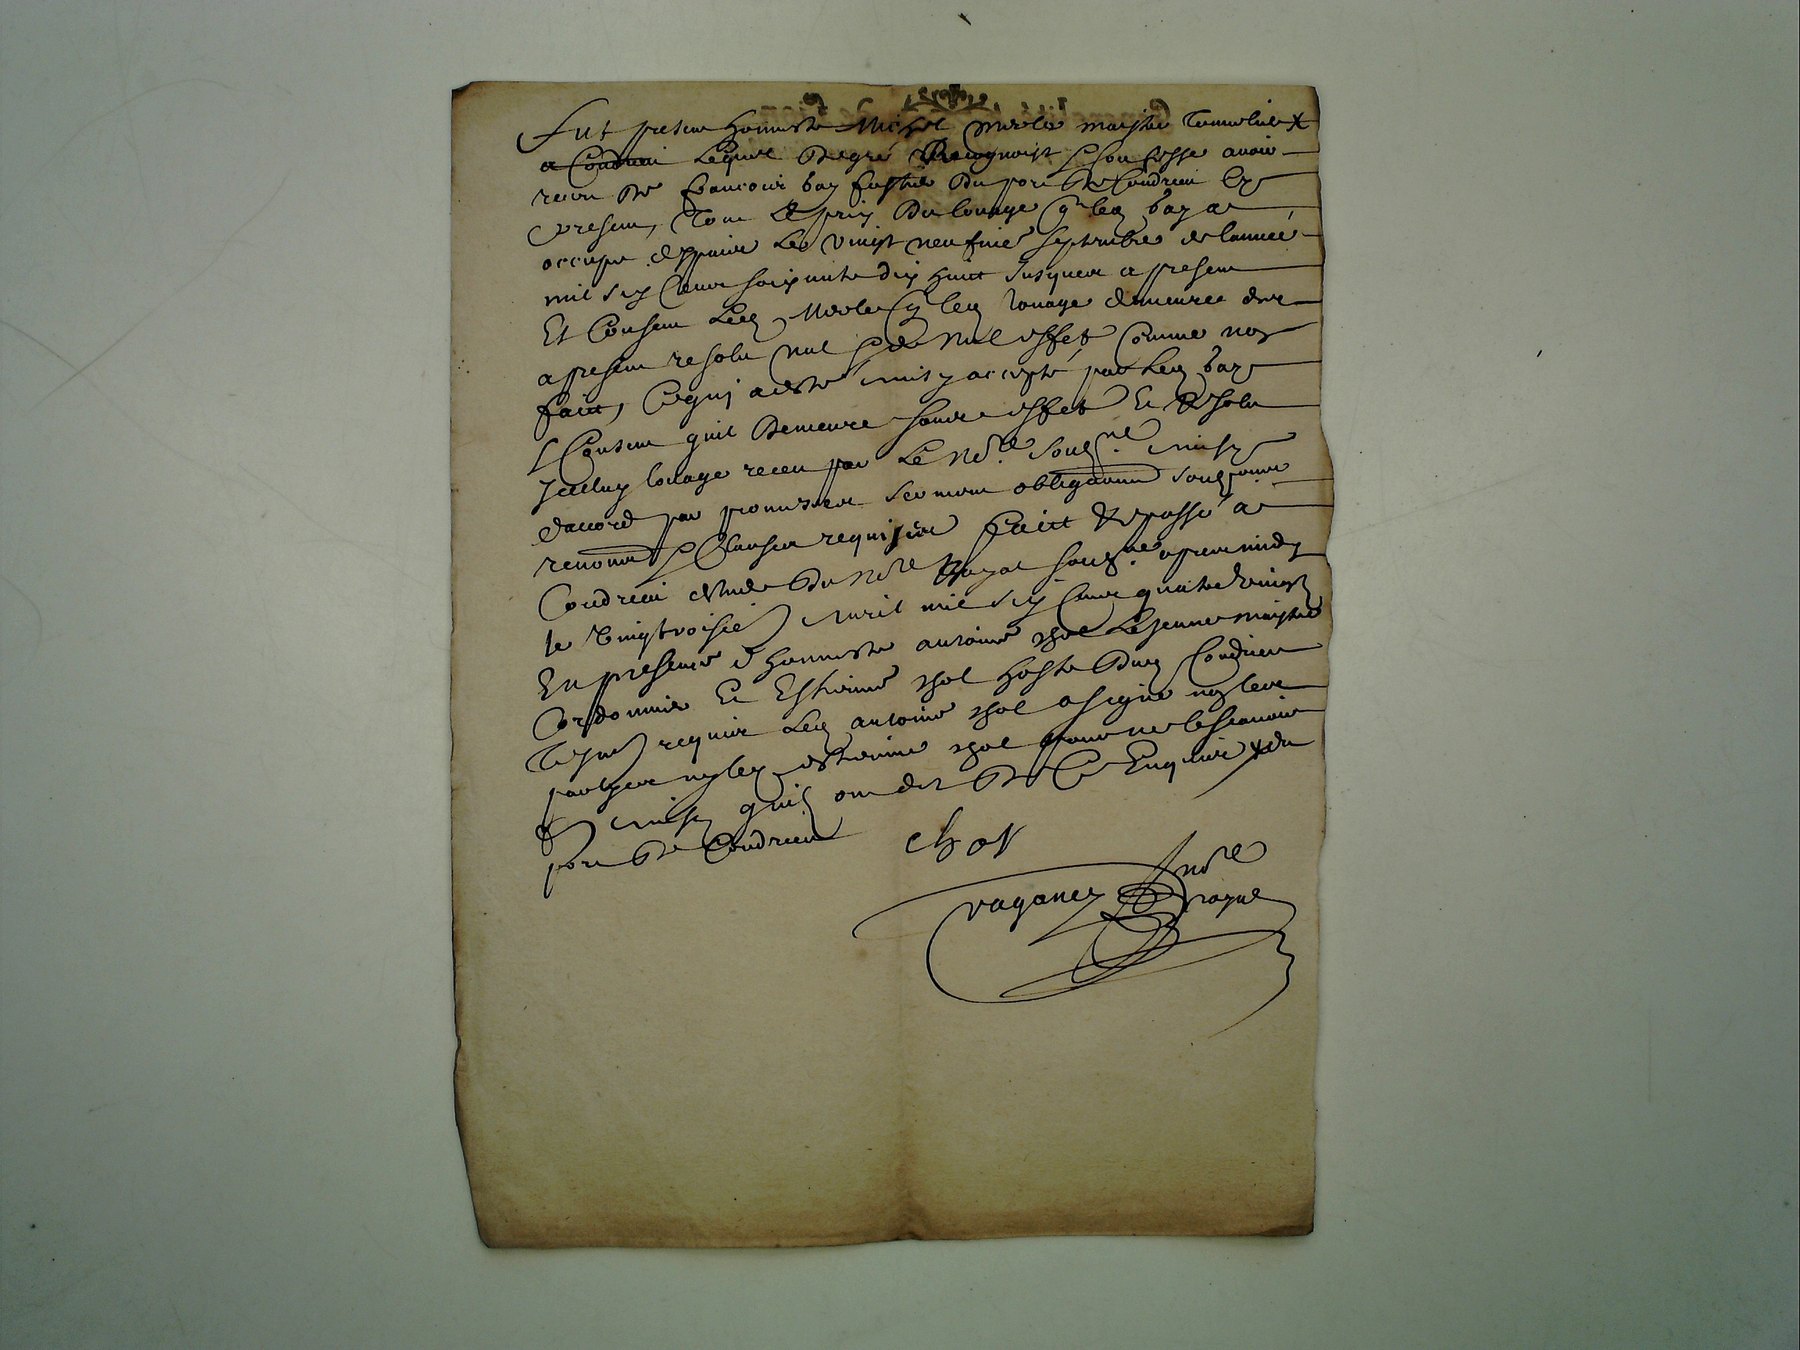 Fut present honneste Michel Merle maistre tonnelier X
a Condrieu Lequel de gre Recognoist & confesse avoir
receu de francois bay fustier du port de Condrieu icy
present, tout le prix du louage q. led bay a
occupe despuis Le vingt neufvie septembre de lannee
mil six cent soixante dix huict jusques a present
Et Consent Led Merle q led louage demeure des
a present resolu nul & de nul effet Comme non
faict, Ce qui a este ainsy accepte par Led bay
& Consent quil demeure sans effet et Resolu
Jcelluy louage receu par Le No.re soubz.ne ainsy
daccord par promesse serment obligations soubz.ons
renon.on & Clauses requises faict & passe a
Condrieu estude du No.re Royal soubz.ne apres midy
le vingtroisie avril mil six cent quatre vingt
En presence d honneste antoine chol Le jeune maistre
Cordonnier Et Estienne chol hoste dud Condrieu
tesm requis Led antoine chol a signe non les
parties ny led estienne chol pour ne le scavoir
ainsy quilz ont dit de Ce Enquis X du
port de Condrieu
chol
raganey no.re
royal